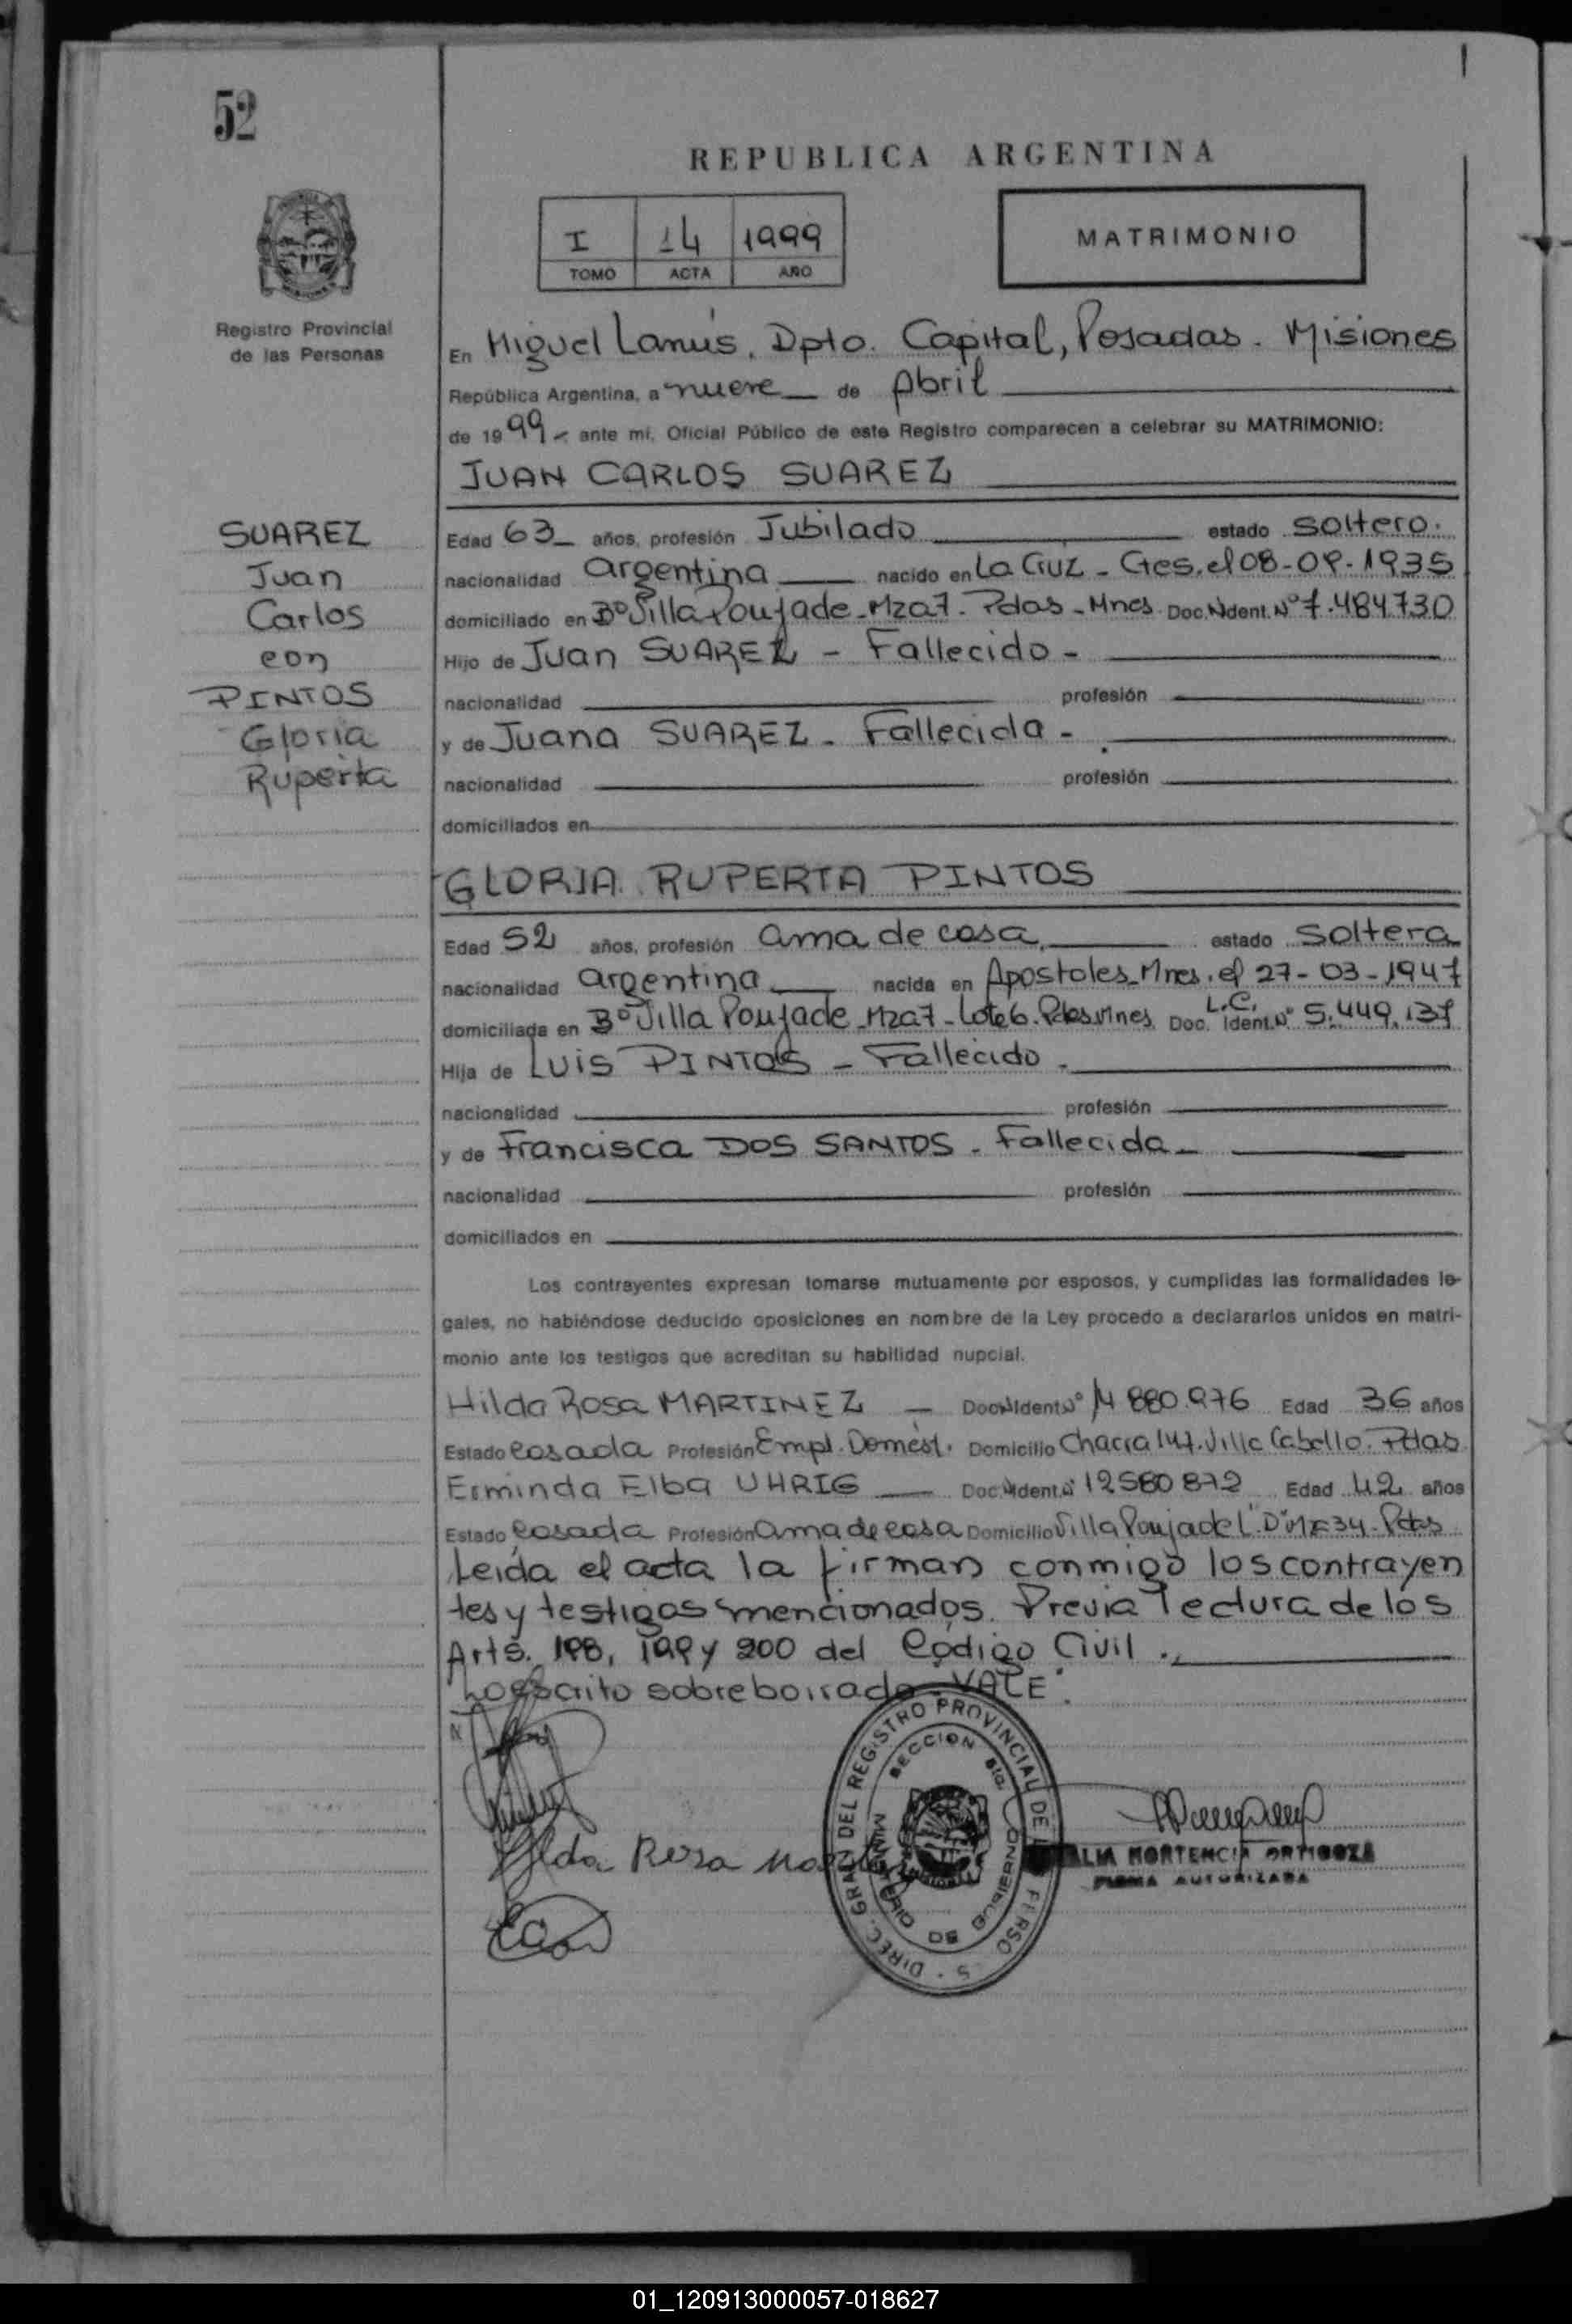 52
REPUBLICA ARGENTINA
I 14 1999
TOMO ACTA AÑO
MATRIMONIO
Registro Provincial
de las Personas
En Miguel Lanús. Dpto. Capital, Posadas. Misiones
República Argentina, a nueve de Abril
de 1999 ante mí, Oficial Público de este Registro comparecen a celebrar su MATRIMONIO:
JUAN CARLOS SUAREZ
SUAREZ
Juan
Carlos
con
PINTOS
Gloria
Ruperta
Edad 63 años, profesión Jubilado estado soltero.
nacionalidad argentina nacido en La Cruz - Ctes. el 08-09-1935
domiciliado en B° Villa Poujade - Mza 7 - Pdas - Mnes. Doc. Ident. N° 7.484.730
Hijo de Juan SUAREZ - Fallecido -
nacionalidad profesión
y de Juana SUAREZ - Fallecida -
nacionalidad profesión
domiciliados en
GLORIA RUPERTA PINTOS
Edad 52 años, profesión ama de casa. estado soltera
nacionalidad argentina nacida en Apostoles - Mnes. el 27-03-1947
domiciliada en B° Villa Poujade - Mza 7 - Lote 6. Pdas Mnes. Doc. L.C. Ident. N° 5.449.137
Hija de Luis PINTOS - Fallecido -
nacionalidad profesión
y de Francisca DOS SANTOS - Fallecida -
nacionalidad profesión
domiciliados en
Los contrayentes expresan tomarse mutuamente por esposos, y cumplidas las formalidades le-
gales, no habiéndose deducido oposiciones en nombre de la Ley procedo a declararlos unidos en matri-
monio ante los testigos que acreditan su habilidad nupcial.
Hilda Rosa MARTINEZ - Doc. Ident. N° 14 880.976 Edad 36 años
Estado casada Profesión Empl. Domést. Domicilio Chacra 147. Villa Cabello. Pdas
Erminda Elba UHRIG - Doc. Ident. N° 12580872 Edad 42 años
Estado casada Profesión ama de casa Domicilio Villa Poujade L. "D" 34 - Pdas
Leída el acta la firman conmigo los contrayen
tes y testigos mencionados. Previa lectura de los
Arts. 198, 199 y 200 del Código Civil.
Lo escrito sobreborrado "VALE".
Hilda Rosa
DIREC. GRAL DEL REGISTRO PROVINCIAL DE
SECCION
MINISTERIO DE GOBIERNO
HORTENCIA ORTIGOZA
FIRMA AUTORIZADA
01_120913000057-018627